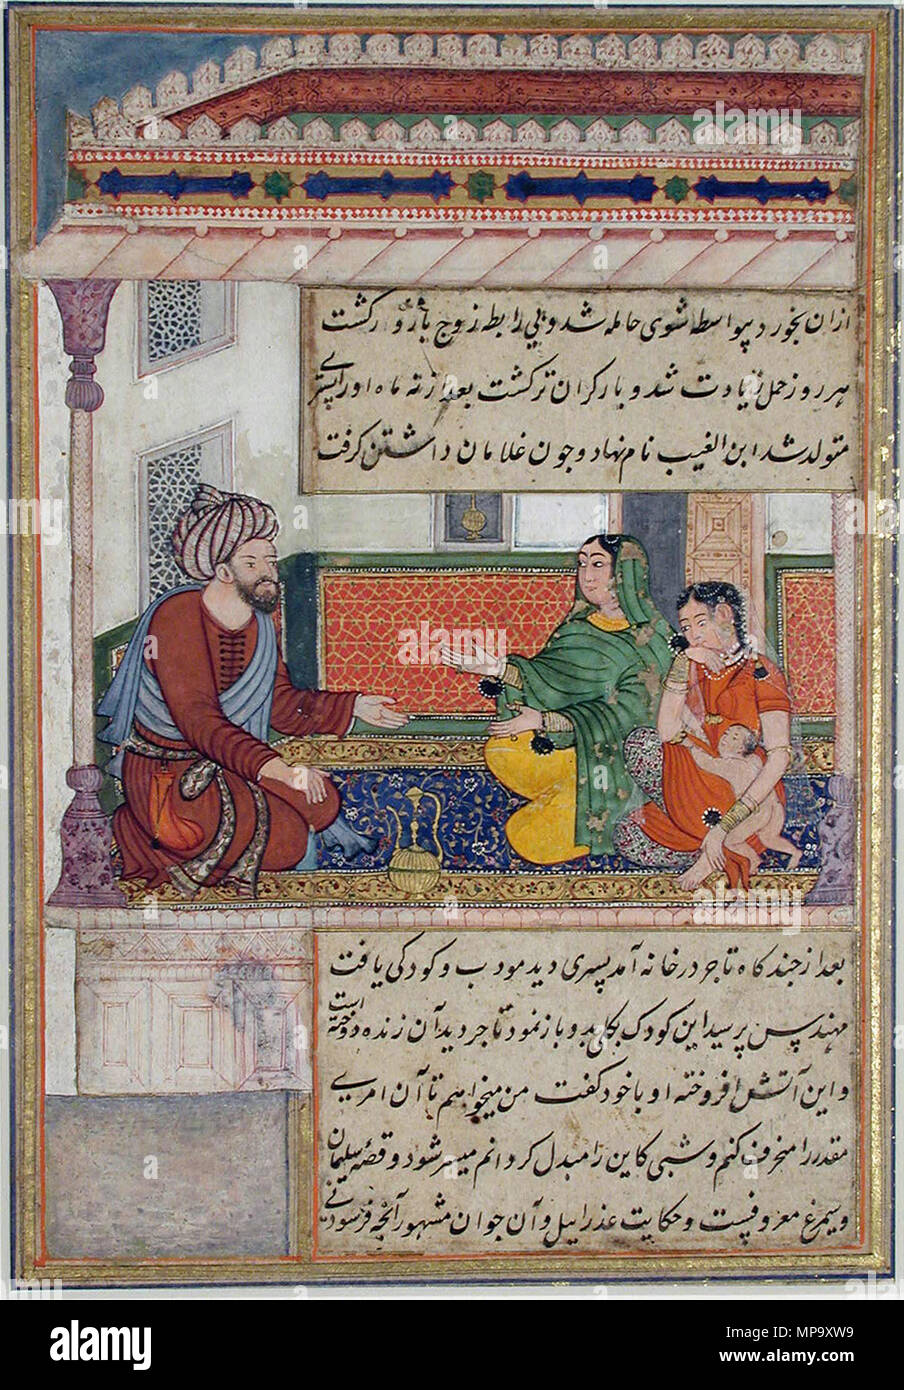 ازان بخورد بیواسطه شوی حامله شد و بی رابطه زوج بارور کشت
هر روز حمل زیادت شد و بار کران تر کشت بعد از نه ماه او را پسری
متولد شد ابن الغیب نام نهاد و چون غلامان داشتن کرفت
بعد از چند کاه تاجر در خانه آمد پسری دید مودب و کودکی یافت
مهندس پرسید این کودک و باز نمود تاجر دید آن زنده دوخته است
و این آتش افروخته او با خود کفت من میخواهم تا آن امری
مقدر را منحرف کنم و شبی کاین را مبدل کردانم میسر شود و قصه سلیمان
و سیمرغ معروفست و حکایت عذراییل و آن جوان مشهور آنچه فرسودنی
alamy
Image ID: MP9XW9
www.alamy.com